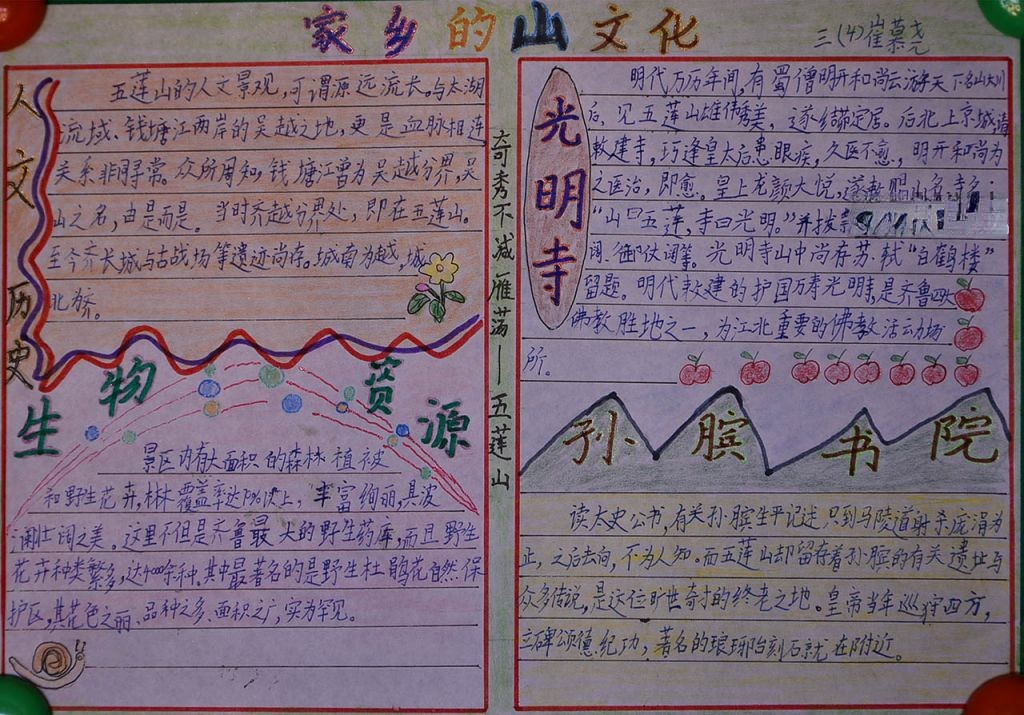 家乡的山文化
三(4)崔慕尧
人文历史
五莲山的人文景观,可谓源远流长。与太湖
流域、钱塘江两岸的吴越之地,更是血脉相连
关系非同寻常。众所周知,钱塘江曾为吴越分界,吴
山之名,由是而是。当时齐越分界处,即在五莲山。
至今齐长城与古战场等遗迹尚存。城南为越,城
北为齐。
生物资源
景区内有大面积的森林植被
和野生花卉,林覆盖率达 以上,丰富绚丽,具波
澜壮阔之美。这里不但是齐鲁最大的野生药库,而且野生
花卉种类繁多,达4000余种,其中最著名的是野生杜鹃花自然保
护区,其花色之丽、品种之多、面积之广,实为罕见。
奇秀不减雁荡——五莲山
光明寺
明代万历年间,有蜀僧明开和尚云游天下名山大川
后,见五莲山雄伟秀美,遂结茆定居。后北上京城请
敕建寺,巧逢皇太后患眼疾,久医不愈,明开和尚为
之医治,即愈。皇上龙颜大悦,遂敕赐山名寺名:
“山曰五莲,寺曰光明。”并拨
阔、御仗阔等。光明寺山中尚存苏轼“白鹤楼”
留题。明代敕建的护国万寿光明寺,是齐鲁四大
佛教胜地之一,为江北重要的佛教活动场
所。
孙膑书院
读太史公书,有关孙膑生平记述只到马陵道射杀庞涓为
止,之后去向,不为人知。而五莲山却留存着孙膑的有关遗址与
众多传说,是这位旷世奇才的终老之地。皇帝当年巡狩四方,
立碑颂德纪功,著名的琅琊台刻石就在附近。